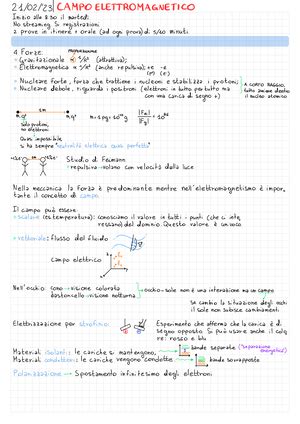 21/02/23 CAMPO ELETTROMAGNETICO
Inizio alle 8:30 il martedì
No streaming. Si registrazioni
2 prove in itinere + orale (ad ogni prova) di 5/20 minuti
4 Forze:
Gravitazionale (attrattiva);
Elettromagnetica (anche repulsiva) +e -e
Nucleare forte, forza che trattiene i nucleoni e stabilizza i protoni;
Nucleare debole, riguarda i positroni (elettroni in tutto per tutto ma
con una carica di segno +)
A corto raggio,
Solo protoni,
no elettroni
Quasi impossibile
si ha sempre "neutralità elettrica quasi perfetta"
Studio di Feimann
repulsiva → volano con velocità della luce
Nella meccanica la forza è predominante mentre nell'elettromagnetismo è impor_
tante il concetto di campo.
Il campo può essere:
scalare (es temperatura): conosciamo il valore in tutti i punti (che ci inte_
ressano) del dominio. Questo valore è univoco
vettoriale: flusso del fluido
campo elettrico
Nell'occhio: cono → visione colorata
bastoncello → visione notturna
occhi-sole non è una interazione ma un campo
se cambio la situazione degli occhi
il sole non subisce cambiamenti
Elettrizzazione per strofinio:
Esperimento che afferma che la carica è di
segno opposto. Si può usare anche il colo_
re: rosso e blu
Materiali isolanti: le cariche si mantengono,
bande separate ("separazione
energetica")
Materiali conduttori: le cariche vengono condotte
bande sovrapposte
Polarizzazione → Spostamento infinitesimo degli elettroni